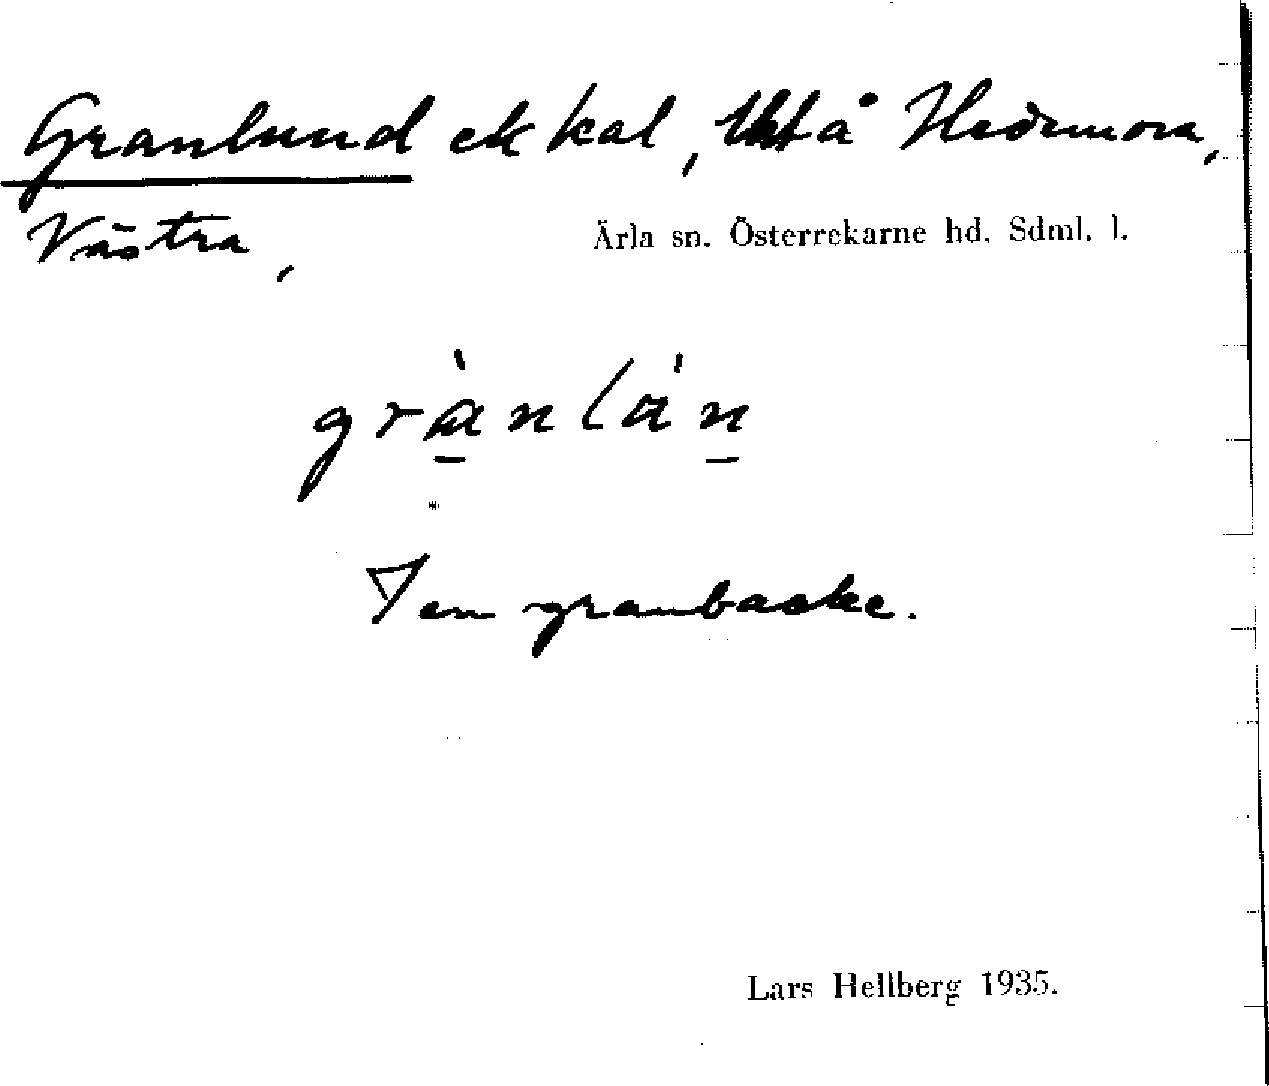 Granlund ek kal, å Hedemora,
Västra,
Ärla sn. Österrekarne hd. Sdml. l.
grànlán
I en granbacke.
Lars Hellberg 1935.